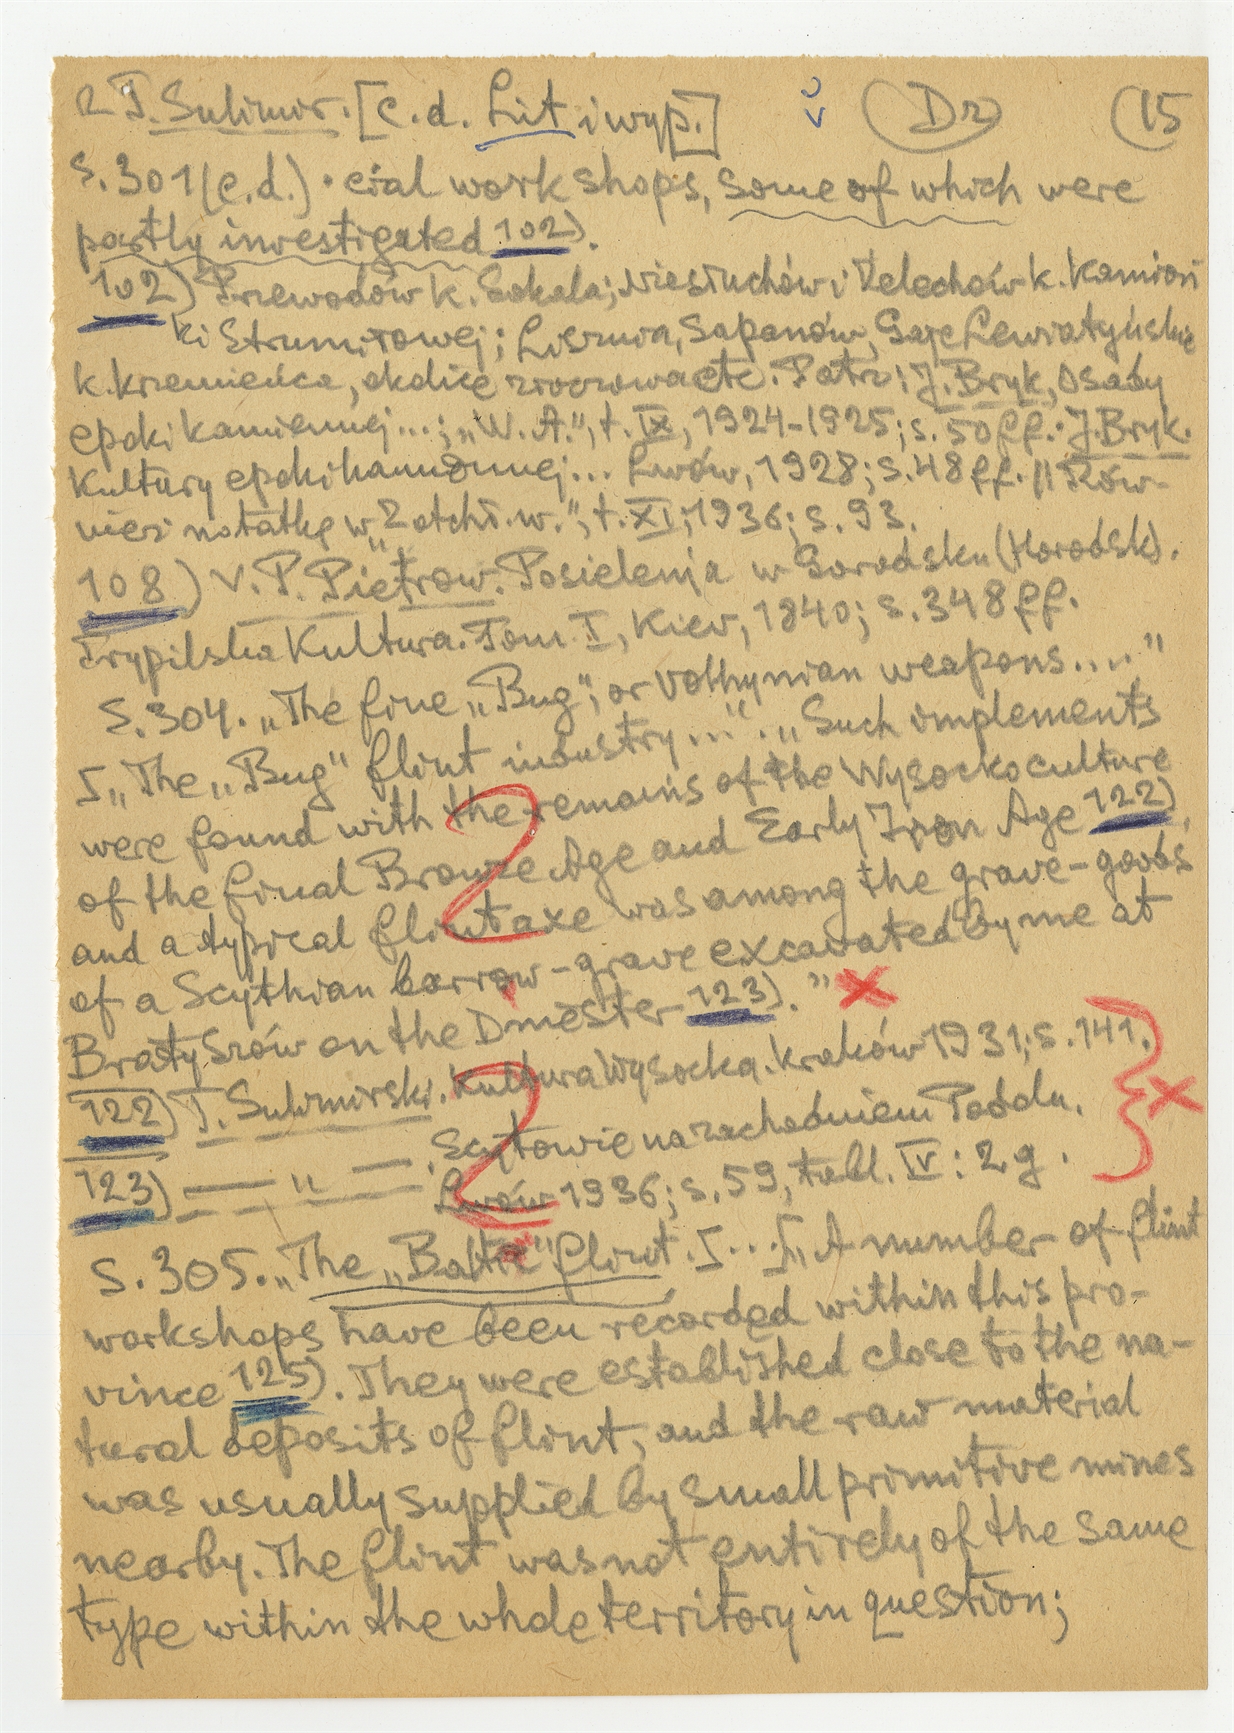 T. Sulimir. [c.d. Lit i wyp.] Dr 15
S. 301 (c.d.) · cial workshops, some of which were
partly investigated 102).
102) Przewodów k. Sokala; Niestuchów i Żelechów k. Kamion
ki Strumiłowej; Lisznia, Sapanów, Gaje Lewiatyńskie
k. Krzemieńca, okolice Złoczowa etc. Patrz: J. Bryk, Osady
epoki kamiennej...; „W. A.", t. IX, 1924-1925; s. 50ff. · J. Bryk.
Kultury epoki kamiennej... Lwów, 1928; s. 48ff. // Rów-
nież notatkę w „Z otchł. w.", t. XI; 1936; s. 93.
108) V. P. Pietrow. Posielenja w Gorodsku (Horodsk).
Trypilska Kultura. Tom. I, Kiev, 1940; s. 348ff.
S. 304. „The fine „Bug", or Volhynian weapons...."
[„The „Bug" flint industry..." . „Such implements
were found with the remains of the Wysocko culture
of the final Bronze Age and Early Iron Age 122),
and a typical flint axe was among the grave-goods
of a Scythian barrow-grave excavated by me at
Bratyszów on the Dniester 123)." x
122) T. Sulimirski. Kultura Wysocka. Kraków 1931; s. 141.
123) — „ — . Scytowie na zachodniem Podolu. x
Lwów 1936; s. 59, tabl. IV: 2g.
S. 305. „The „Baltic" flint. [...] „A number of flint
workshops have been recorded within this pro-
vince 125). They were established close to the na-
tural deposits of flint, and the raw material
was usually supplied by small primitive mines
nearby. The flint was not entirely of the same
type within the whole territory in question;